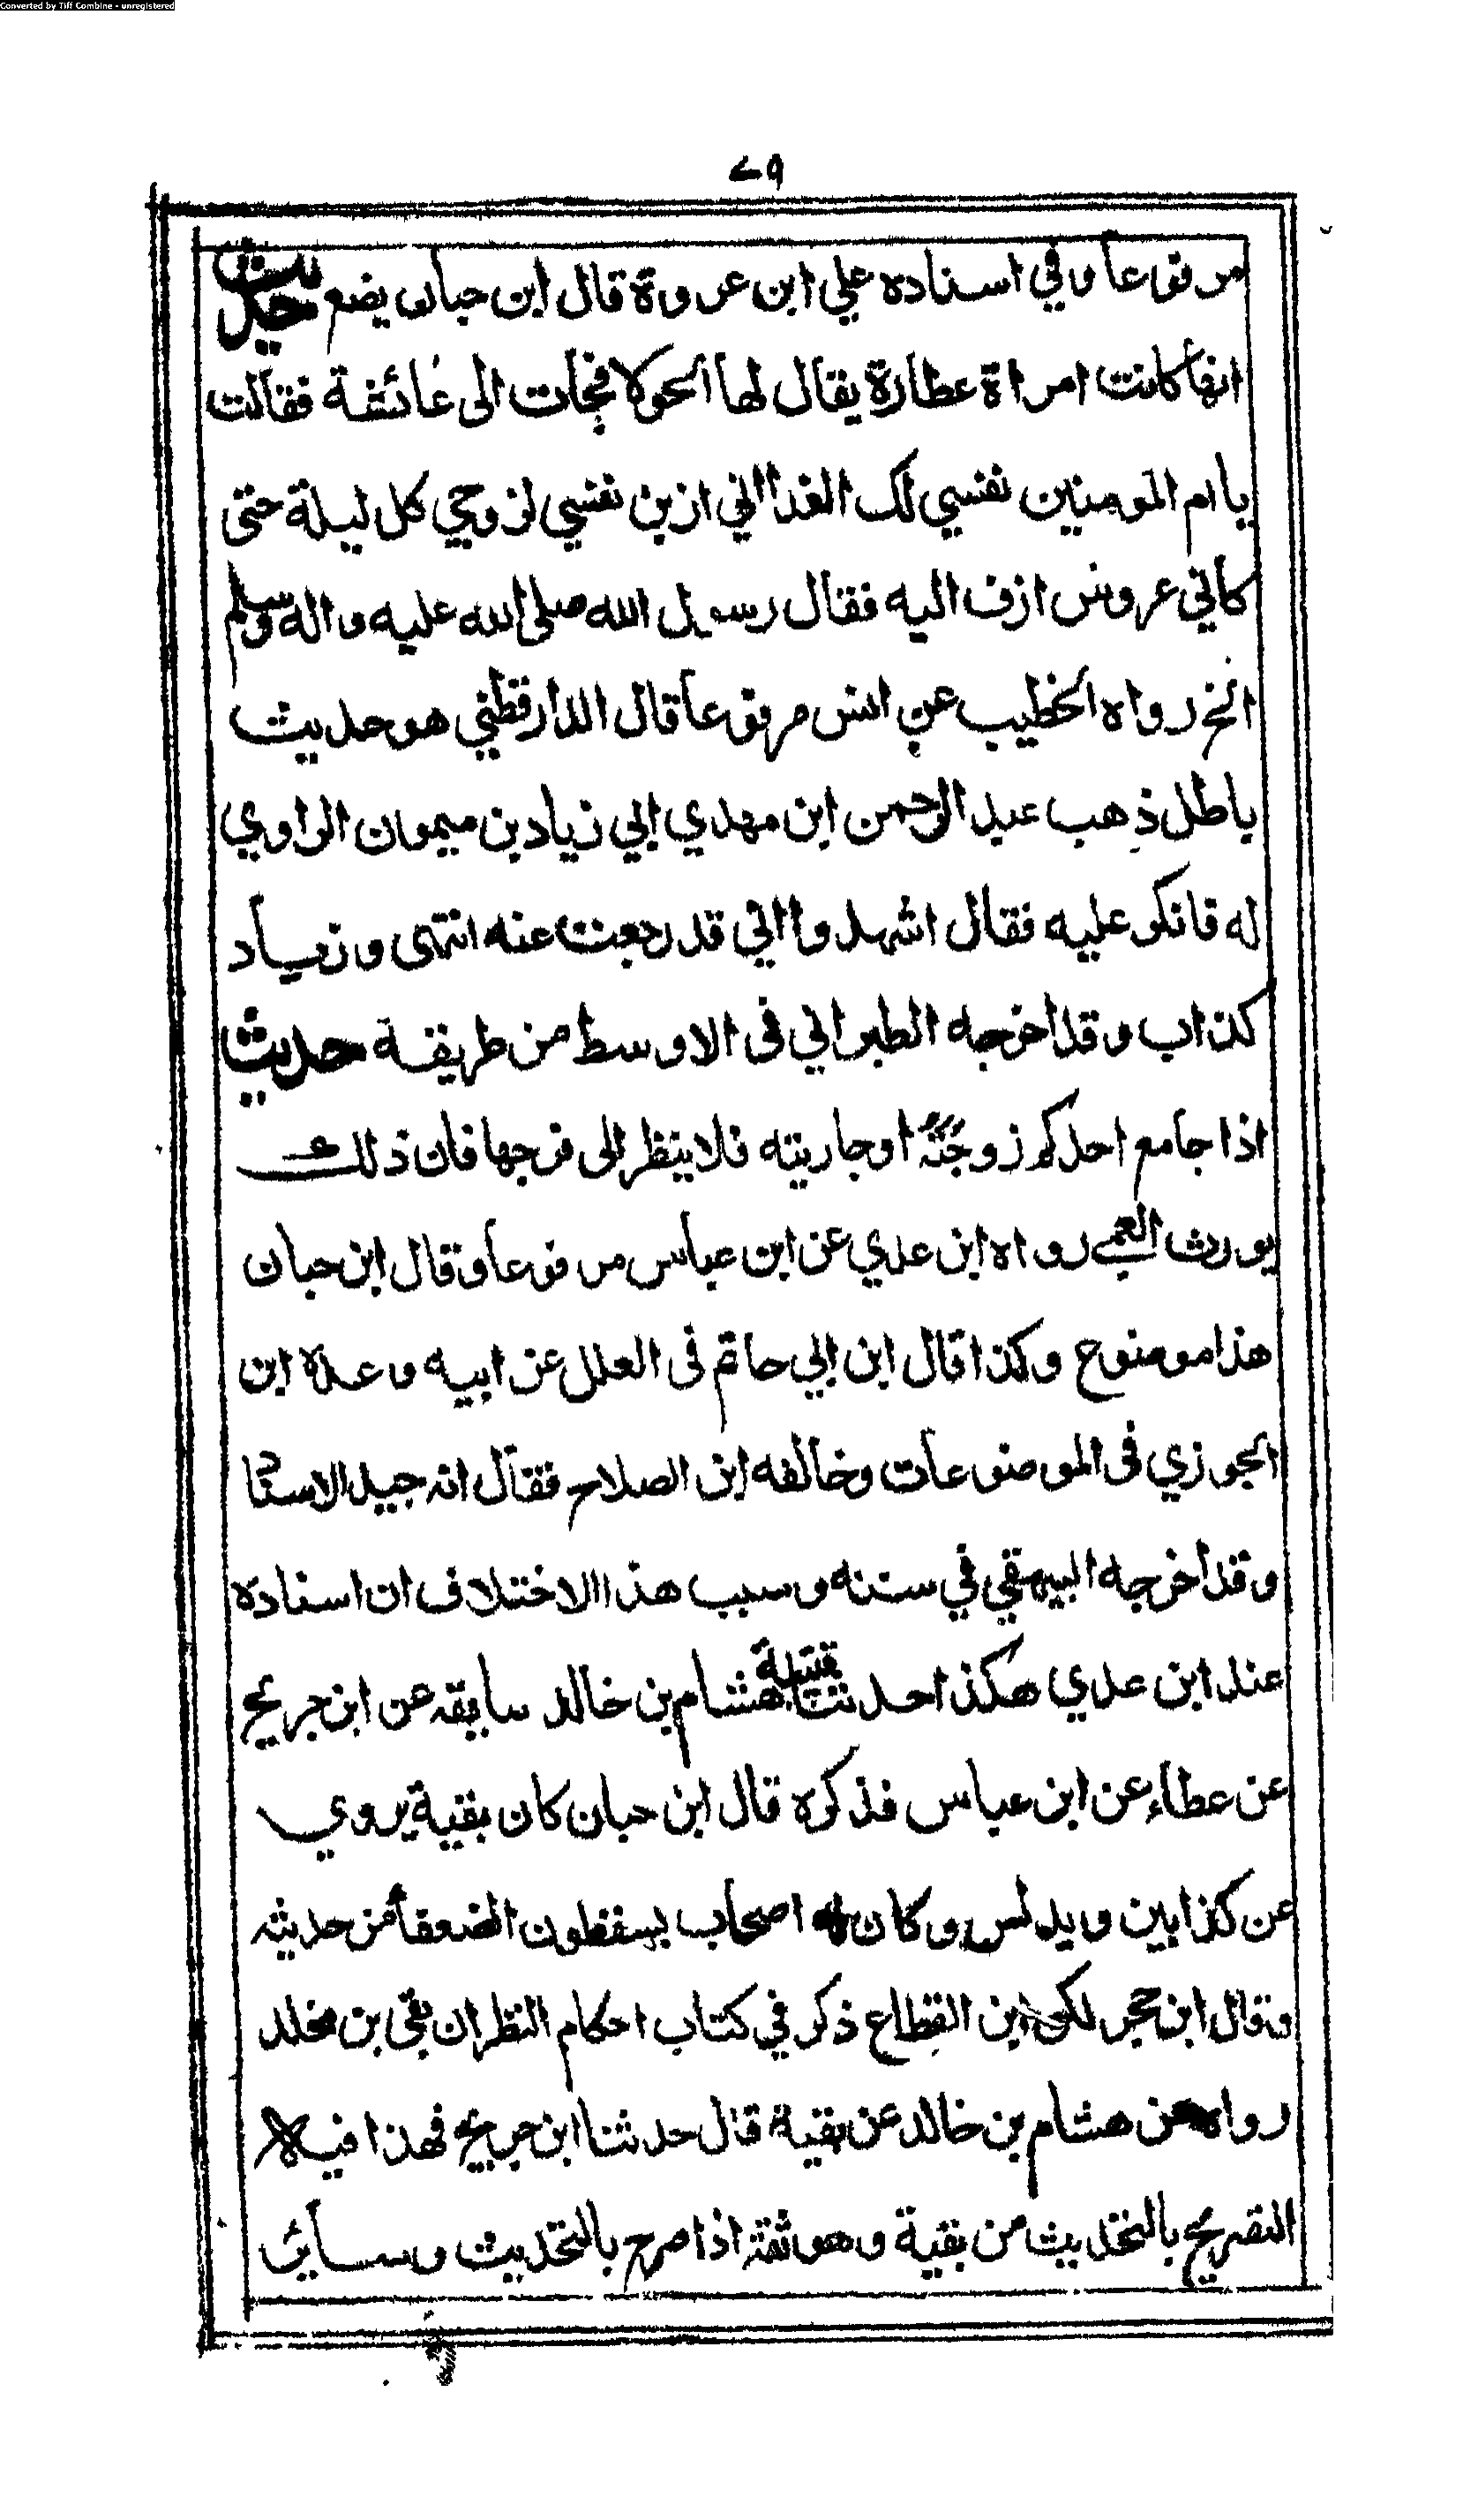 Converted by Tiff Combine - unregistered
٧٩
مرفوعا وفي اسناده علي ابن عروة قال ابن حبان يضع حديث
انها كانت امراة عطارة يقال لها الحولا فجات الى عائشة فقالت
ياام المومنين نفسي لك الفدا اني ازين نفسي لزوجي كل ليلة حتى
كاني عروس ازف اليه فقال رسول الله صلى الله عليه واله وسلم
الخ رواه الخطيب عن انس مرفوعا قال الدارقطني هو حديث
باطل ذهب عبد الرحمن ابن مهدي الي زياد بن ميمون الراوي
له فانكر عليه فقال اشهدوا اني قد رجعت عنه انتهى وزياد
كذاب وقد اخرجه الطبراني فى الاوسط من طريقة حديث
اذا جامع احدكم زوجته او جاريته فلا ينظر الى فرجها فان ذلك
يورث العمى رواه ابن عدي عن ابن عباس مرفوعا وقال ابن حبان
هذا موضوع وكذا قال ابن ابي حاتم فى العلل عن ابيه وعده ابن
الجوزي فى الموضوعات وخالفه ابن الصلاح فقال انه جيد الاسناد
وقد اخرجه البيهقي في سننه وسبب هذا الاختلاف ان اسناده
عند ابن عدي هكذا حدثنا قتيبة هشام بن خالد سابقه عن ابن جريج
عن عطاء عن ابن عباس فذكره قال ابن حبان كان بقية يروي
عن كذابين ويدلس وكان له اصحاب يسقطون الضعفا من حديثه
وقال ابن حجر لكن ابن القطاع ذكر في كتاب احكام النظر ان بقي بن مخلد
رواه عن هشام بن خالد عن بقية قال حدثنا ابن جريج فهذا فيه
التصريح بالتحديث من بقية وهو ثقة اذا صرح بالتحديث وسائر